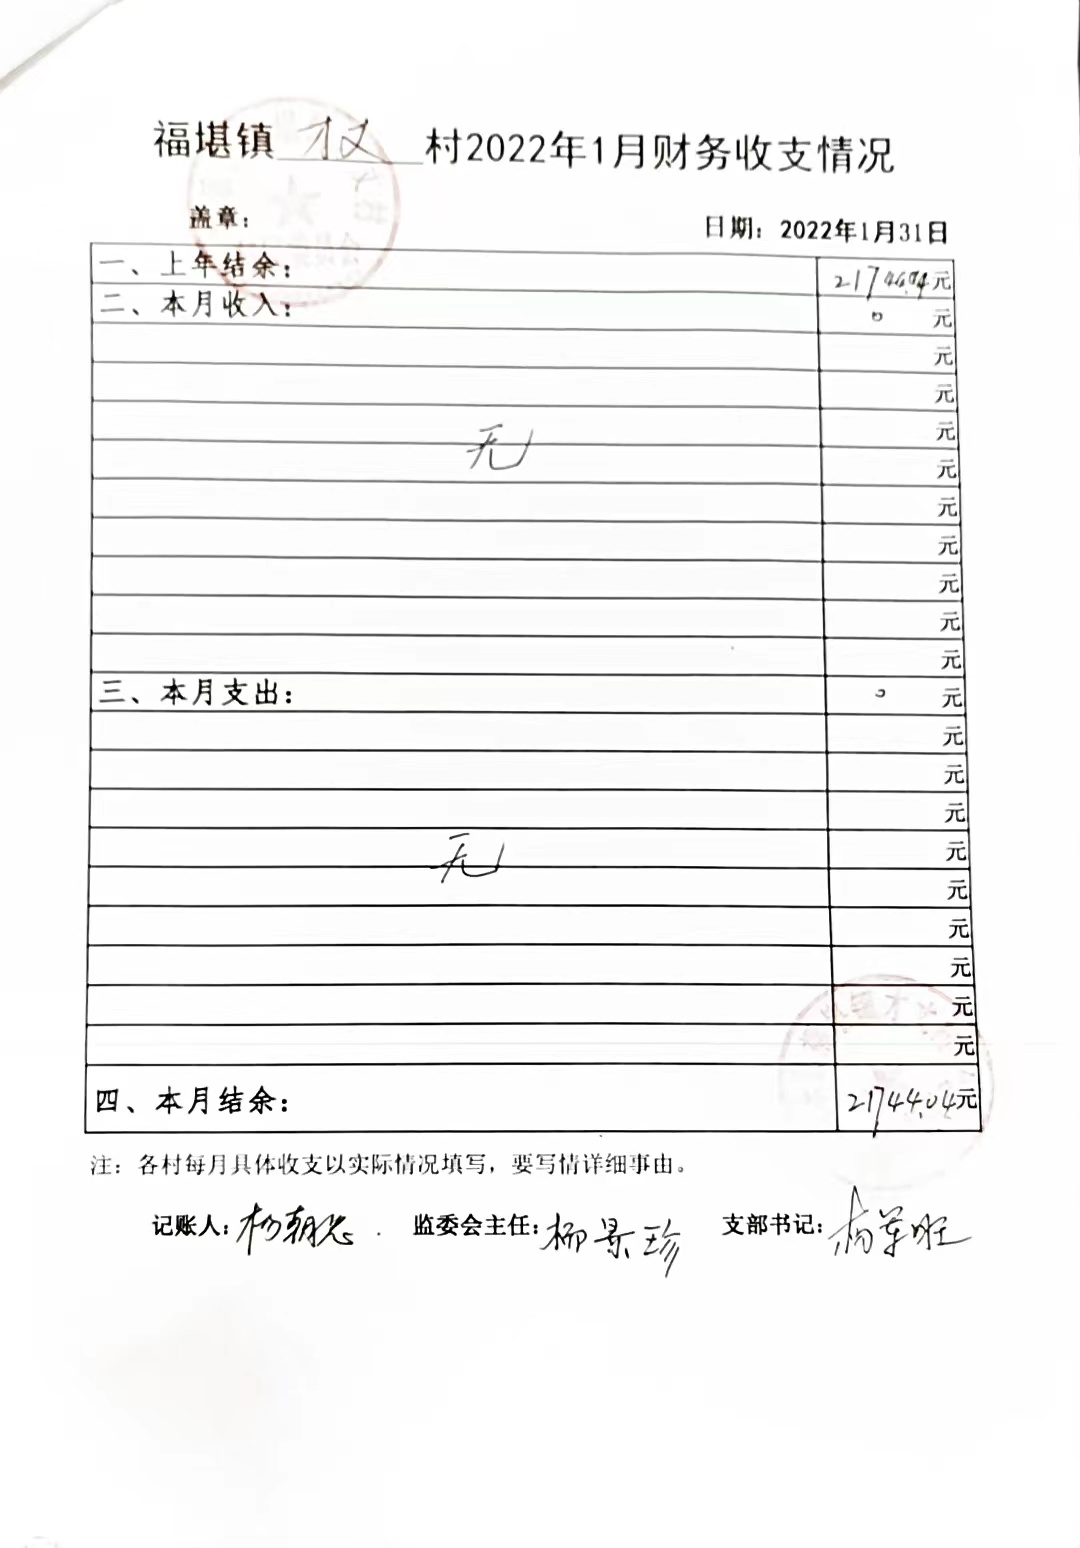 福堪镇 村2022年1月财务收支情况
盖章： 日期：2022年1月31日
一、上年结余： 元
二、本月收入： 0 元
元
元
元
无 元
元
元
元
元
元
三、本月支出： 0 元
元
元
元
无 元
元
元
元
元
元
四、本月结余： 21744.04元
注：各村每月具体收支以实际情况填写，要写情详细事由。
记账人： 监委会主任：柳景珍 支部书记：